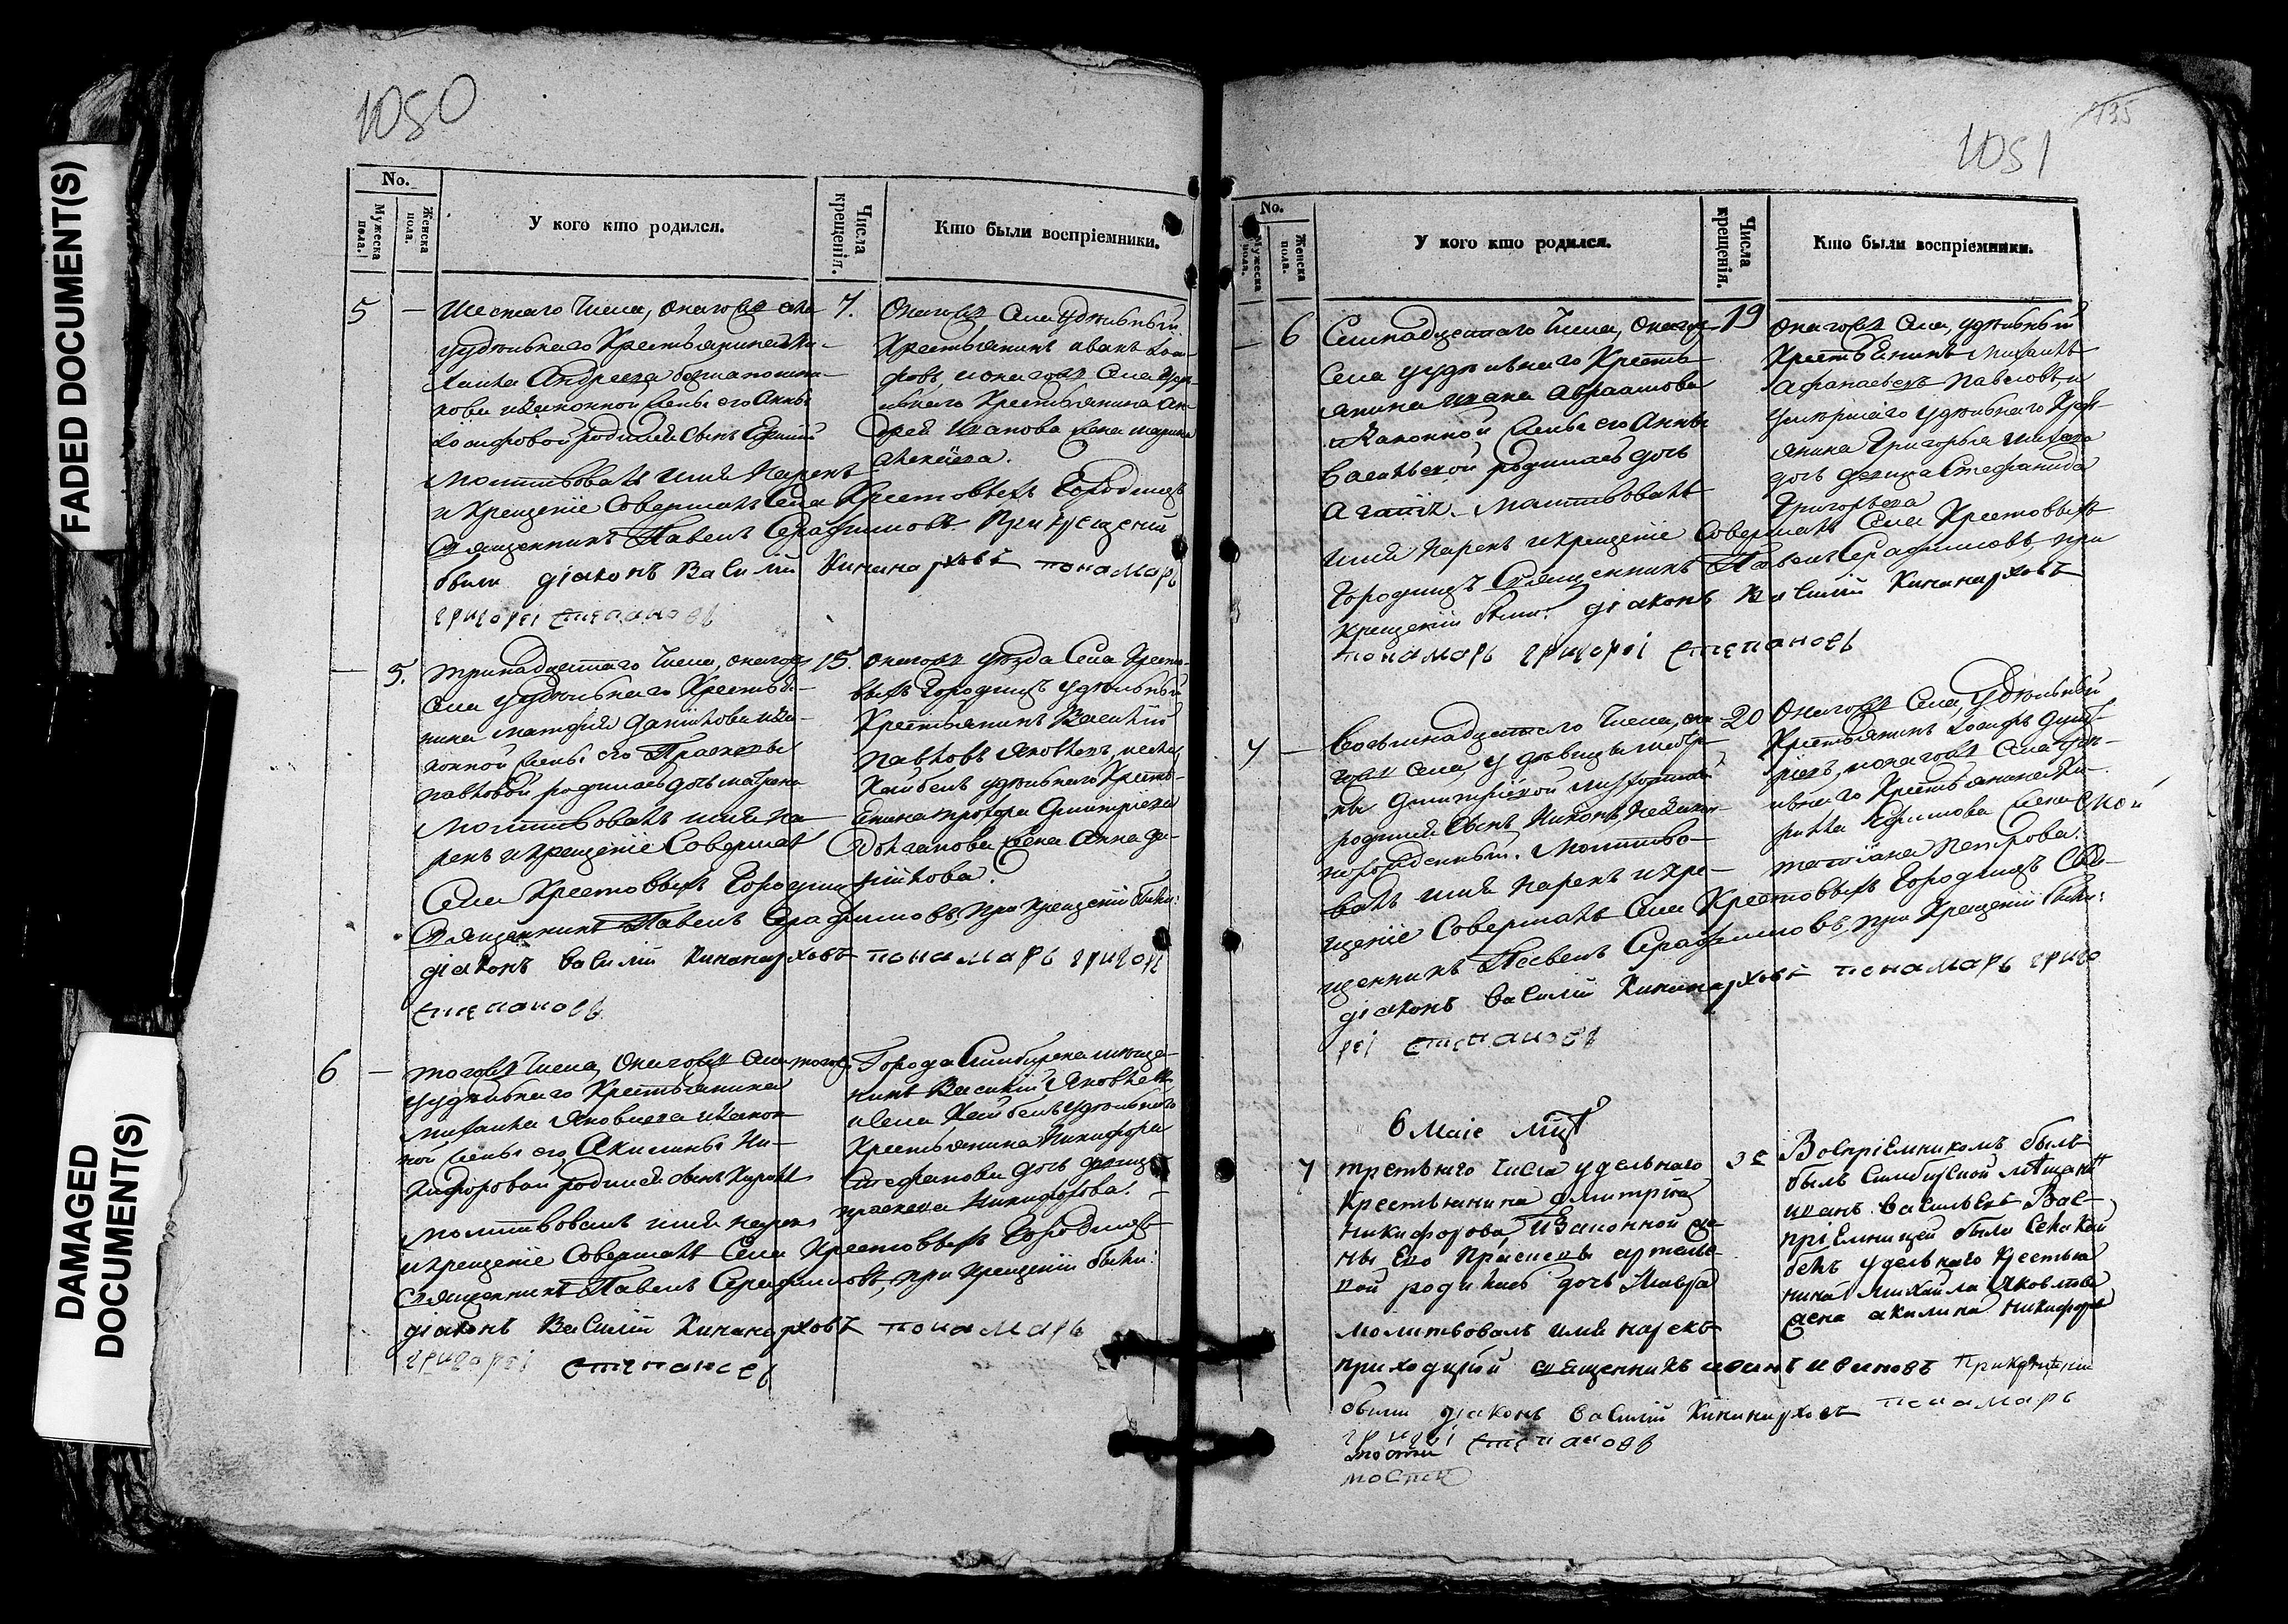 FADED DOCUMENT(S)
DAMAGED
DOCUMENT(S)
1050
No.
Мужеска пола.
Женска пола.
У кого кто родился.
Числа крещенія.
Кто были воспріемники.
5 — Шестаго числа, онагожъ села
удѣльнаго крестьянина Ми-
хаила Андреева
кова и законной жены его Анны
Іосифовой родился сынъ
Молитвовалъ имя нарекъ
и крещеніе совершалъ села Крестовыхъ Городищъ
священникъ Павелъ Серафимовъ при крещеніи
были діаконъ Василій Кинапарховъ понамарь
григореі степановъ
7. Онагожъ села удѣльный
крестьянинъ иванъ Іоси-
фовъ, и онагожъ села удѣ-
льнаго крестьянина Ан-
дрея Иванова жена марина
Алексѣева.
— 5. Тринадцатаго числа, онагожъ
села удѣльнаго крестья-
нина матфея Данилова и за-
конной жены его Прасковьи
Павловой родилась дочь матрена
Молитвовалъ имя на-
рекъ и крещеніе совершалъ
села Крестовыхъ Городищъ
священникъ Павелъ Серафимовъ, при крещеніи были:
діаконъ василій Кинапарховъ понамарь григорі
степановъ
15. Онагожъ уѣзда села Кресто-
выхъ Городищъ удѣльный
крестьянинъ Василій
Павловъ Яковлевъ, и села
Кайбелъ удѣльнаго кресть-
янина Димитріева
Долганова жена Анна Да-
нилова.
6 — Тогожъ числа, онагожъ села
удѣльнаго крестьянина
михаила Яковлева и закон-
ной жены его, Акилины Ни-
кифоровой родился сынъ Кирилъ
молитвовалъ имя нарекъ
и крещеніе совершалъ села Крестовыхъ Городищъ
священникъ Павелъ Серафимовъ, при крещеніи были:
діаконъ Василій Кинапарховъ понамарь
григореі степановъ
тогожъ Города Симбирска мѣща-
нинъ Василій Яковлевъ
и села Кайбелъ удѣльнаго
крестьянина Никифора
Стефанова дочь девица
прасковья Никифорова.
1051
135
No.
Мужеска пола.
Женска пола.
У кого кто родился.
Числа крещенія.
Кто были воспріемники.
— 6 Семнадцатаго числа, онагожъ
села удѣльнаго кресть-
янина ивана Авраамова
и законной жены его Анны
Васильевой родилась дочь
Агаѳія. Молитвовалъ
имя нарекъ и крещеніе совершалъ села Крестовыхъ
Городищъ священникъ Павелъ Серафимовъ, при
крещеніи были: діаконъ Василій Кинапарховъ
понамарь григореі степановъ
19 Онагожъ села, удѣльный
крестьянинъ михаилъ
Афанасьевъ Павловъ и
умершаго удѣльнаго крес-
янина Григорья
дочь девица Стефанида
Григорьева
7 — Восемнадцатаго числа, она-
гожъ села, у дѣвицы
Димитріевой
родился сынъ Никонъ, незакон-
норожденный. Молитво-
валъ имя нарекъ и кре-
щеніе совершалъ села Крестовыхъ Городищъ свя-
щенникъ Павелъ Серафимовъ, при крещеніи были:
діаконъ василій Кинапарховъ понамарь григо
реі степановъ
20 Онагожъ села, удѣльный
крестьянинъ Іосифъ Димит-
ріевъ, и онагожъ села удѣ-
льнаго крестьянина Ки-
рилла Ефимова жена
татіана Петрова.
в Маіе мцѣ
7 третьяго числа удельнаго
крестьянина Дмитрія
Никифорова, и законной же-
ны его Прасковьи артемье-
вой родилась дочь Мавра
молитвовалъ имя нарекъ
приходской священникъ иоаннъ ивановъ При крещеніи
были діаконъ василій Кинапарховъ понамарь
григореі степановъ
3е Воспріемникомъ былъ
былъ Симбирской мѣщанинъ
иванъ васильевъ Вос-
пріемницей была села кай
белъ удельнаго крестья
нина Михаила Яковлева
жена акилина Никифоро